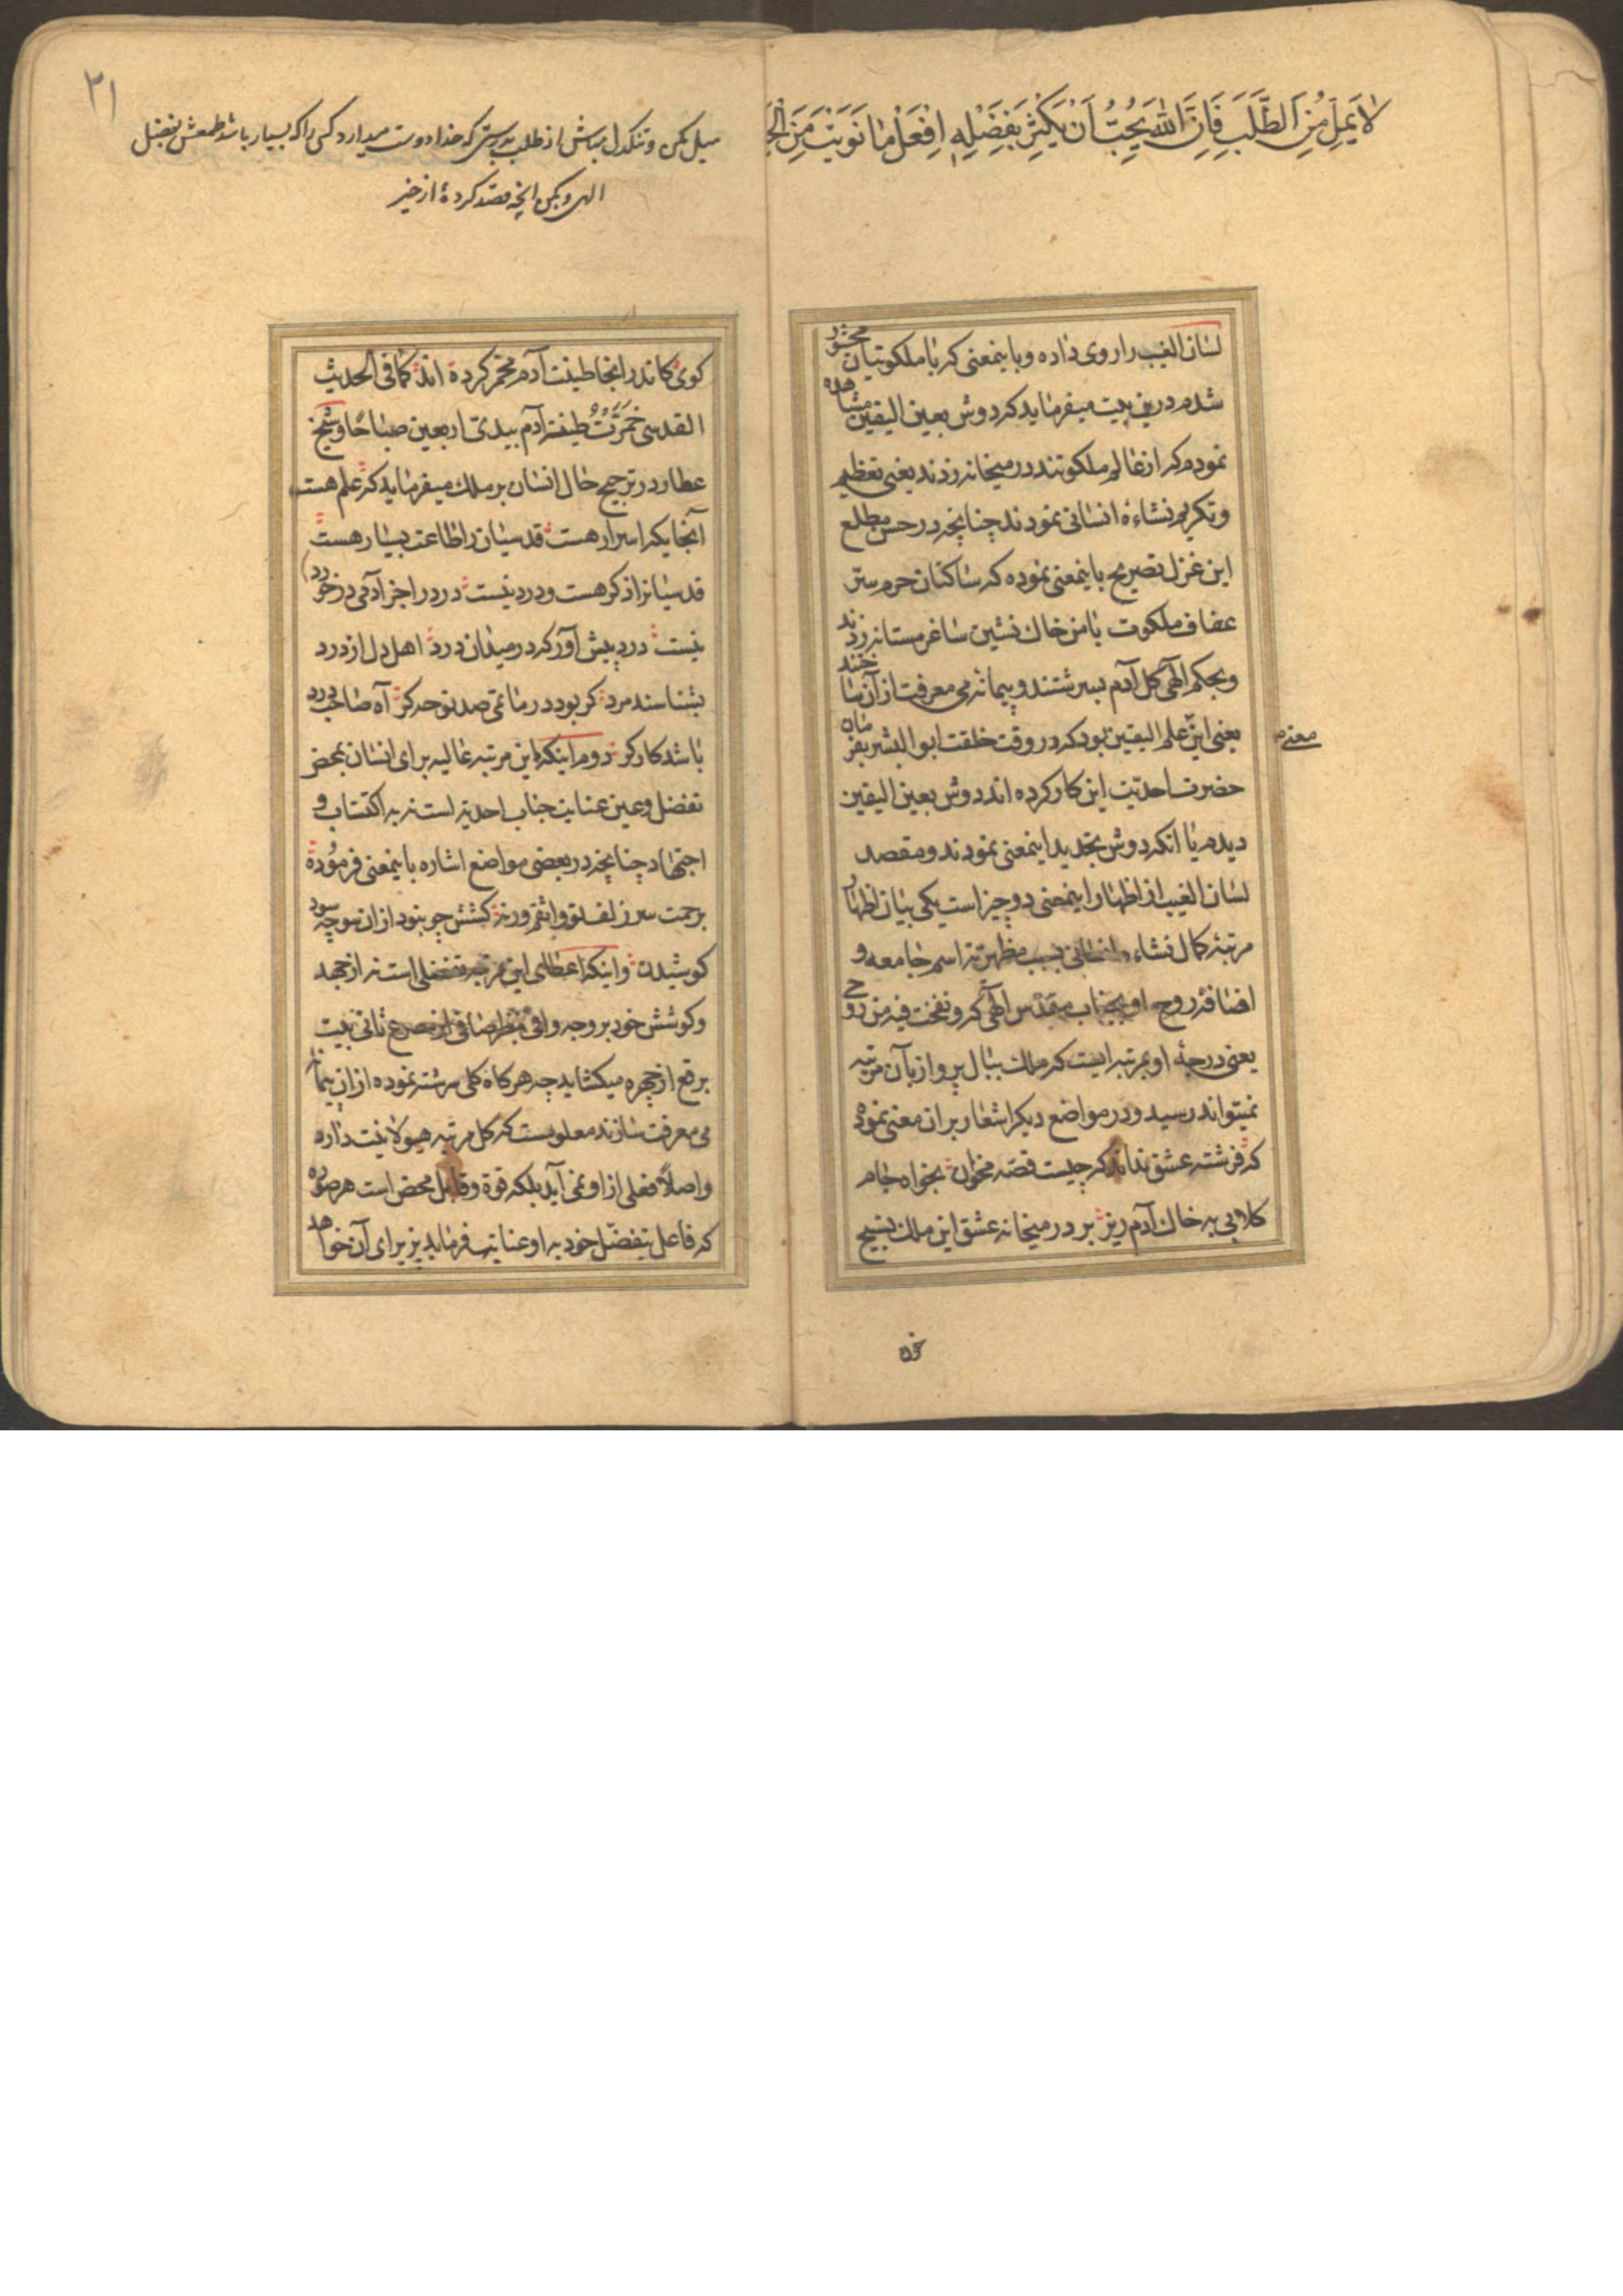 لا یمل من الطلب فان الله یحب ان یکثر بفضله افعل ما نویت من
لسان الغیب را روی داده و باینمعنی که با ملکوتیان محشور
شدم درین بیت میفرماید که دوش بعین الیقین مشاهده
نمودم که از عالم ملکوتند در میخانه زدند یعنی تعظیم
و تکریم نشاءه انسانی نمودند چنانچه در حسن مطلع
این غزل تصریح باینمعنی نموده که ساکنان حرم ستر
عفاف ملکوت با من خاک نشین ساغر مستانه زدند
و بحکم الهی گل آدم بسرشتند و پیمانه می معرفت از آن ساختند
یعنی این علم الیقین بود که در وقت خلقت ابو البشر بفرمان
معنی م
حضرت احدیت این کار کرده اند دوش بعین الیقین
دیدم یا انکه دوش بتجدید اینمعنی نمودند و مقصد
لسان الغیب از اظهار اینمعنی دو چیز است یکی بیان اظهار
مرتبه کمال نشاء انسانی بسبب مظهریت اسم جامعه و
اضافه روح او بجناب مقدس الهی که و نفخت فیه من روحی
یعنی درجه او بمرتبه ایست که ملک ببال پرواز بآن مرتبه
نمیتواند رسید و در مواضع دیکر اشعار بر ان معنی نموده
که فرشته عشق نداند که چیست قصه مخوان بخواه جام
کلابی به خاک آدم ریز بر در میخانه عشق ای ملک تسبیح
۲۱
میل مکن و تنکدل مباش از طلب بدرستی که خدا دوست میدارد کسی را که بسیار باشد طمعش بفضل
الهی و بکن انچه قصد کردهٔ از خیر
کوی کاندر انجا طینت آدم مخمر کرده اند کما فی الحدیث
القدسی خمرت طینة آدم بیدی اربعین صباحا و شیخ
عطار در ترجیح حال انسان بر ملک میفرماید که علم هست
آنجایکه اسرار هست قدسیان را طاعت بسیار هست
قدسیانرا ذکر هست و درد نیست درد را جز آدمی در خورد
نیست درد پیش آور که در میدان درد اهل دل از درد
بشناسند مرد کر بود در ماتمی صد نوحه کر آه صاحب درد
باشد کارکر دوم اینکه این مرتبه عالیه برای انسان بمحض
تفضل و عین عنایت جناب احدیه است نه به اکتساب و
اجتهاد چنانچه در بعضی مواضع اشاره باینمعنی فرموده
برحمت سر زلف تو واثقم ورنه کشش چو نبود از ان سو چه سود
کوشیدن و اینکه اعطای این مرتبه تفضلی است نه از جهد
و کوشش خود بر وجه وافی بنظر صافی از مصرع ثانی بیت
برقع از چهره میکشاید چه هر کاه کلی سرشته نموده از ان پیمانه
می معرفت سازند معلومست که کل مرتبه هیولانیت داره
و اصلا فعلی از او نمی آید بلکه قوة و قابل محض است هر صورة
که فاعل بتفضل خود به او عنایت فرماید پذیرای آن خواهد